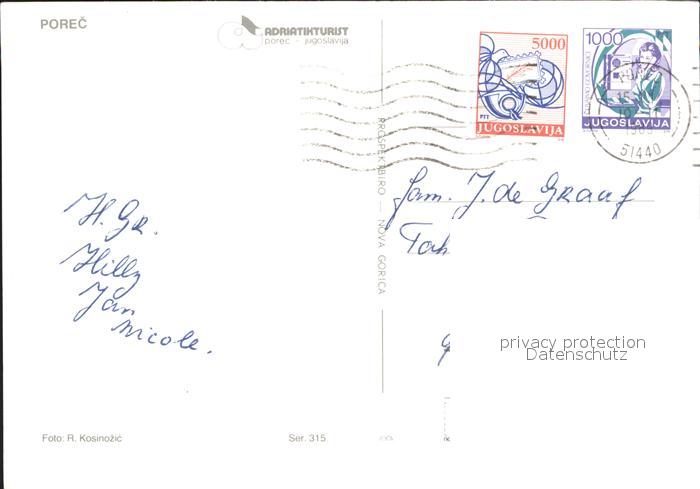 POREČ
ADRIATIKTURIST
poreč - jugoslavija
5000
PTT
JUGOSLAVIJA
1000
JUGOSLAVIJA
51440
PROSPEKTBIRO — NOVA GORICA
Fam. J. de Graaf
H. Gr.
Hilly
Jan
Nicole.
privacy protection
Datenschutz
Foto: R. Kosinožić
Ser. 315